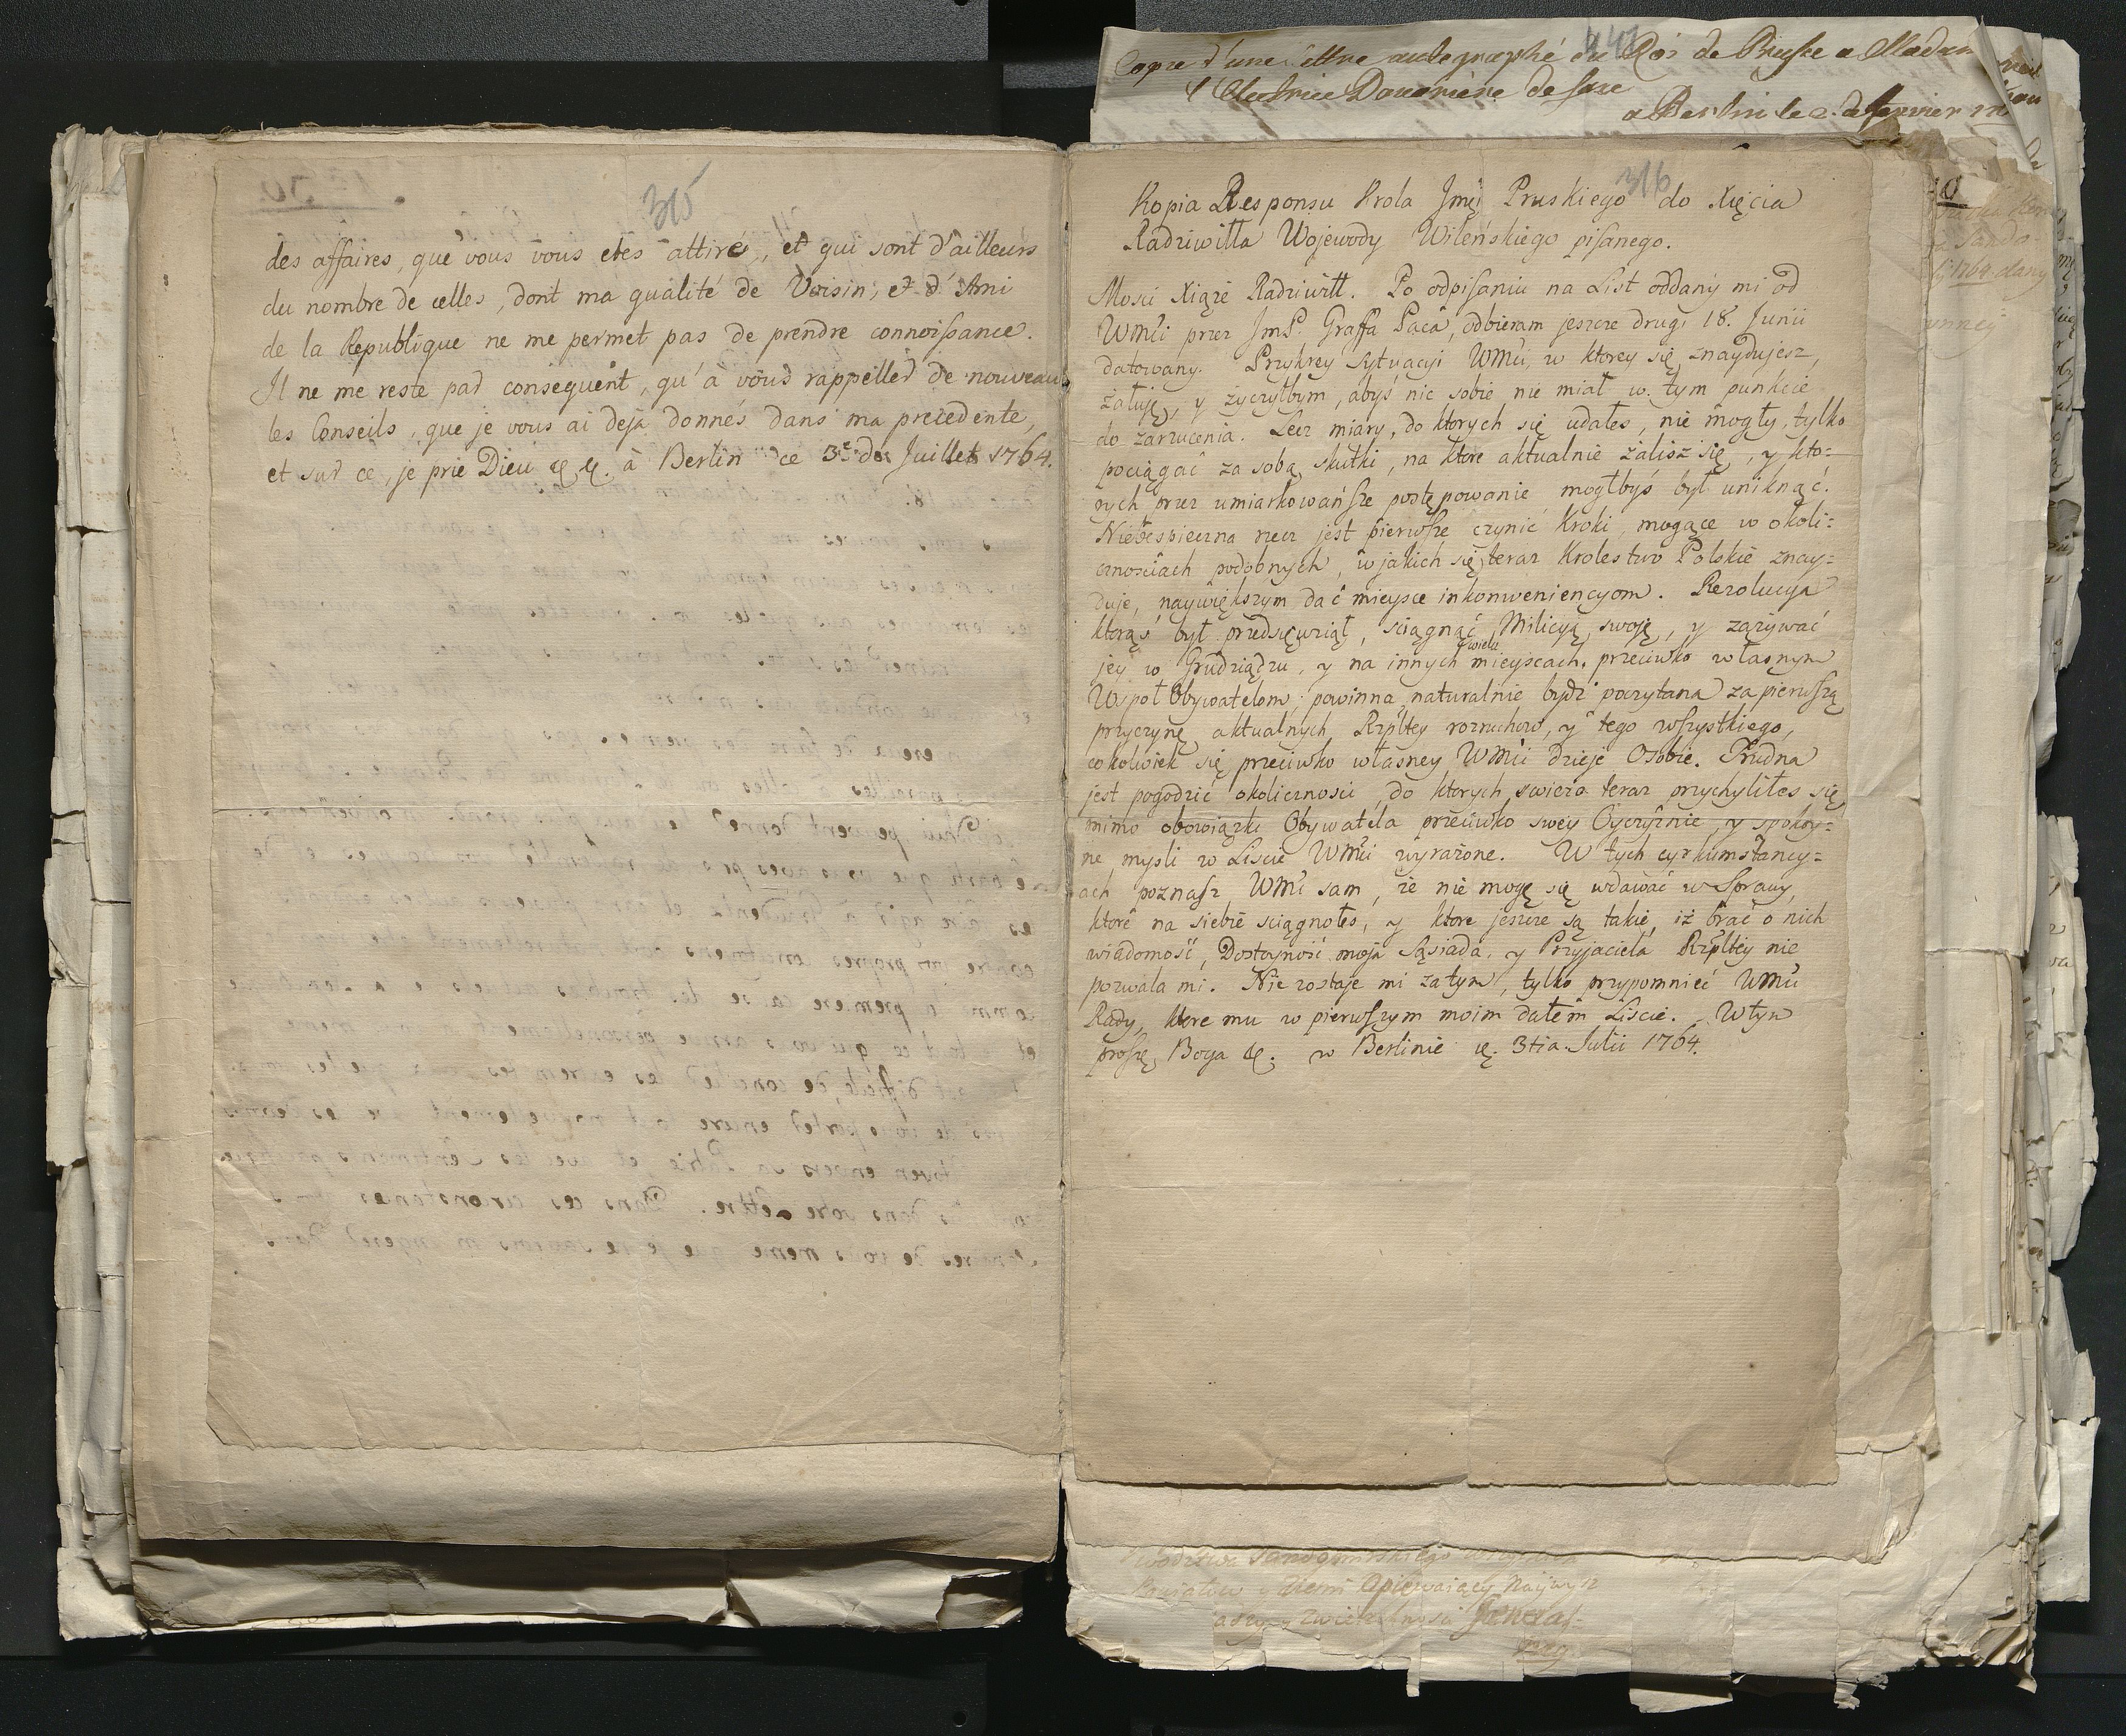 315
des affaires, que vous vous etes attiré, et qui sont d'ailleurs
du nombre de celles, dont ma qualité de Voisin, et d'Ami
de la Republique ne me permet pas de prendre connoissance.
Il ne me reste par consequent, qu'à vous rappeller de nouveau
les Conseils, que je vous ai deja donnés dans ma precedente,
et sur ce, je prie Dieu &c &c. à Berlin ce 3e de Juillet 1764.
447
Copie d'une lettre autographé du Roi de Prusse a Madam
l'Electrice Douariere de Saxe
a Berlin le 2. de Janvier
316
Kopia Responsu Krola Jmći Pruskiego do Xięcia
Radziwiłła Wojewody Wileńskiego pisanego.
Mości Xiąże Radziwiłł. Po odpisaniu na List oddany mi od
WMći przez JmP. Graffa Paca, odbieram jeszcze drugi 18. Junii
datowany. Przykrey sytuacyi WMći, w ktorey się znaydujesz,
żałuję, y życzyłbym, abyś nic sobie nie miał w tym punkcie
do zarzucenia. Lecz miary, do ktorych się udałes, nie mogły, tylko
pociągać za sobą skutki, na ktore aktualnie żalisz się, y kto=
rych przez umiarkowańsze postępowanie mogłbyś był uniknąć.
Niebespieczna rzecz jest pierwsze czynić kroki, mogące w okoli=
cznościach podobnych, w jakich się teraz Krolestwo Polskie znay=
duje, naywiększym dać mieysce inkonweniencyom. Rezolucya
ktorąś był przedsięwziął, sciągnąć Milicyą swoję, y zażywać
jey w Grudziądzu, y na innych wielu mieyscach, przeciwko własnym
Wspoł Obywatelom, powinna naturalnie bydź poczytana za pierwszą
przyczynę aktualnych Rzpltey rozruchow, y tego wszystkiego,
cokolwiek się przeciwko własney WMći dzieje Osobie. Trudna
jest pogodzić okoliczności, do ktorych swieżo teraz przychyliłes się
mimo obowiązki Obywatela przeciwko swey Oyczyznie, y spokoy=
ne mysli w Liscie WMći wyrażone. W tych cyrkumstancy=
ach poznasz WMć sam, że nie mogę się wdawać w Sprawy,
ktore na siebie sciągnołes, y ktore jeszcze są takie, iż brać o nich
wiadomość, Dostoyność moja Sąsiada, y Przyjaciela Rzpltey nie
pozwala mi. Nie zostaje mi zatym, tylko przypomnieć WMći
Rady, ktore mu w pierwszym moim dałem Liscie. Wtym
proszę Boga &c. w Berlinie &c. 3tia Julii 1764.
1764 dany